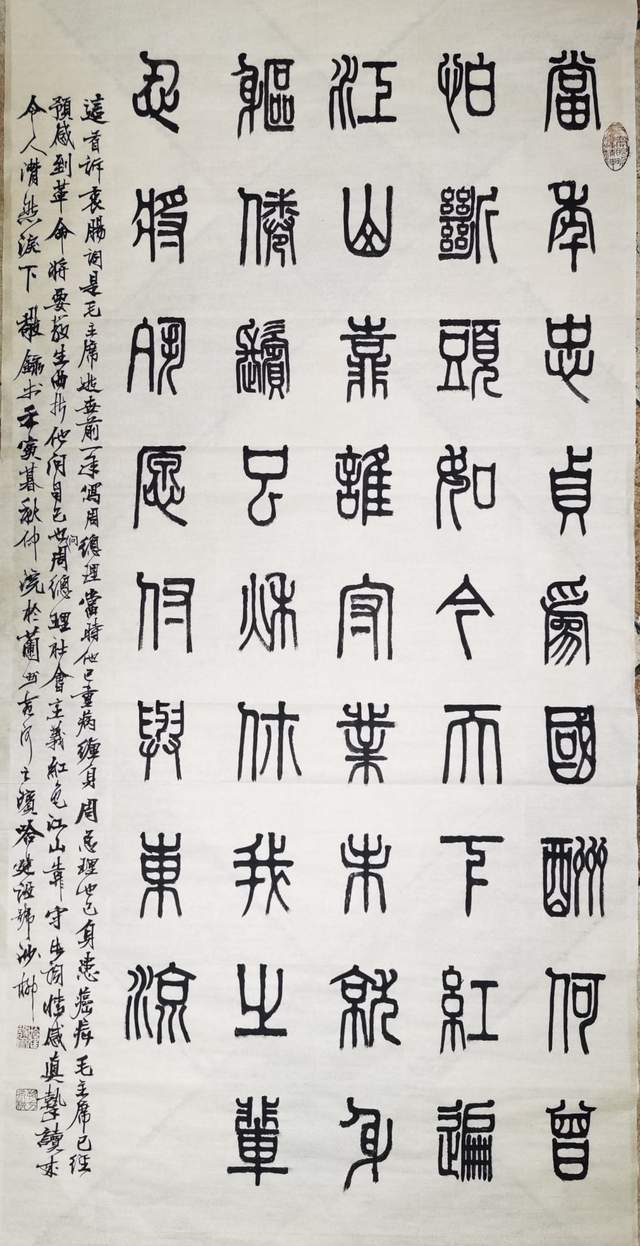 當年忠貞為國酬何曾
怕斷頭如今天下紅遍
江山靠誰守業未就身
軀倦鬢已秋休我之輩
忍將夙愿付與東流
這首訴衷腸詞是毛主席逝世前一年寫周總理當時他已重病纏身周总理也已身患癌病毛主席已經
預感到革命將要發生曲折他問自己也問周總理社會主義紅色江山靠守詞情感真摯讀來
令人潸然淚下敬錄書壬寅暮秋仲浣於蘭州黃河之濱哈建設號沙柳